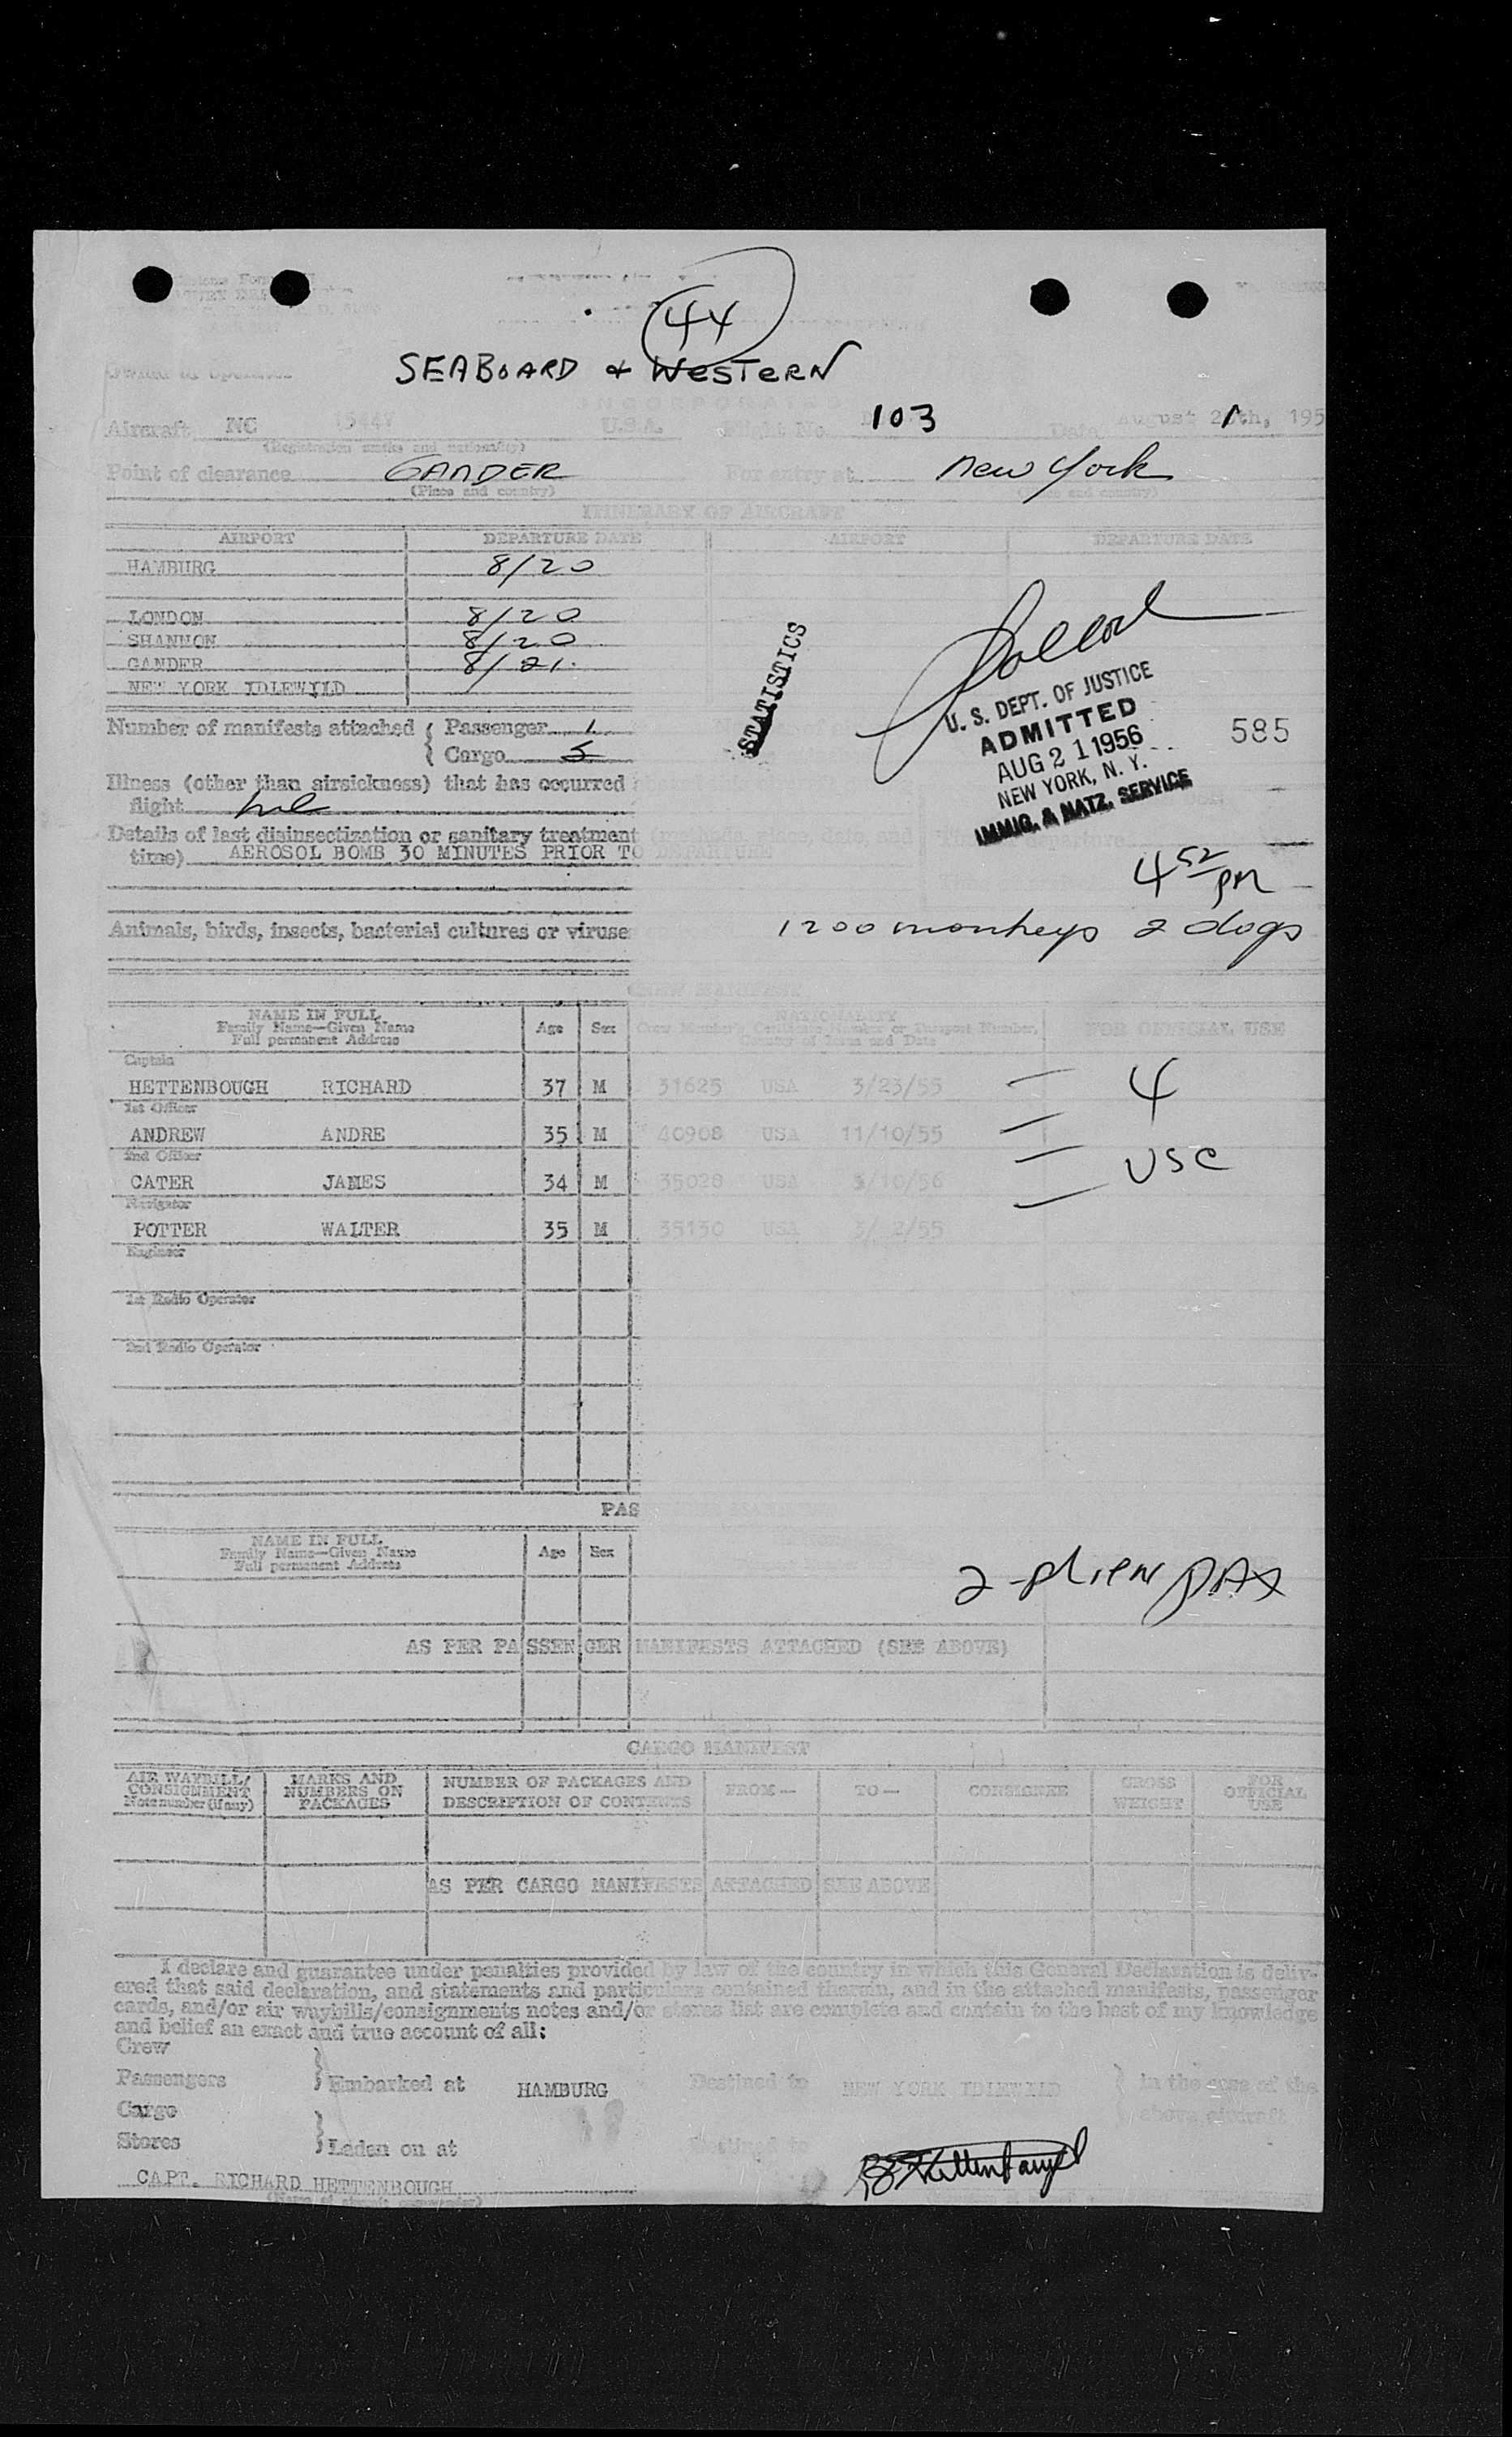 44
SEABOARD & WESTERN
INCORPORATED
Aircraft NC U.S.A. Flight No. 103 Date August 2 th, 195
(Registration marks and nationality)
Point of clearance GANDER For entry at New York
(Place and country) (Place and country)
ITINERARY OF AIRCRAFT
AIRPORT DEPARTURE DATE AIRPORT DEPARTURE DATE
HAMBURG 8/20
LONDON 8/20
SHANNON 8/20
GANDER 8/21.
NEW YORK IDLEWILD
STATISTICS
U. S. DEPT. OF JUSTICE
ADMITTED
AUG 21 1956
NEW YORK, N. Y.
IMMIG. & NATZ. SERVICE
585
Number of manifests attached { Passenger 1.
Cargo 5
Illness (other than airsickness) that has occurred
flight
Details of last disinsectization or sanitary treatment
time) AEROSOL BOMB 30 MINUTES PRIOR TO
4 52 PM
Animals, birds, insects, bacterial cultures or viruse 1200 monkeys 2 dogs
CREW MANIFEST
NAME IN FULL
Family Name—Given Name
Full permanent Address
Age Sex
NATIONALITY
Crew Member's Certificate Number or Passport Number,
Country of Issue and Date
FOR OFFICIAL USE
Captain
HETTENBOUGH RICHARD 37 M 31625 USA 3/23/55 — 4
1st Officer
ANDREW ANDRE 35 M 40908 USA 11/10/55 —
2nd Officer
CATER JAMES 34 M 35028 USA /10/56 — USC
Navigator
POTTER WALTER 35 M 35130 USA / 2/55 —
Engineer
1st Radio Operator
2nd Radio Operator
PAS
NAME IN FULL
Family Name—Given Name
Full permanent Address
Age Sex
2 Alien PAX
AS PER PASSENGER MANIFESTS ATTACHED (SEE ABOVE)
CARGO MANIFEST
AIR WAYBILL/ CONSIGNMENT Note number (if any)
MARKS AND NUMBERS ON PACKAGES
NUMBER OF PACKAGES AND DESCRIPTION OF CONTENTS
FROM— TO— CONSIGNEE GROSS WEIGHT FOR OFFICIAL USE
AS PER CARGO MANIFESTS ATTACHED SEE ABOVE
I declare and guarantee under penalties provided by law of the country in which this General Declaration is deliv-
ered that said declaration, and statements and particulars contained therein, and in the attached manifests, passenger
cards, and/or air waybills/consignments notes and/or stores list are complete and contain to the best of my knowledge
and belief an exact and true account of all:
Crew
Passengers } Embarked at HAMBURG Destined to NEW YORK IDLEWILD } in the case of the
Cargo above aircraft
Stores } Laden on at
CAPT. RICHARD HETTENBOUGH